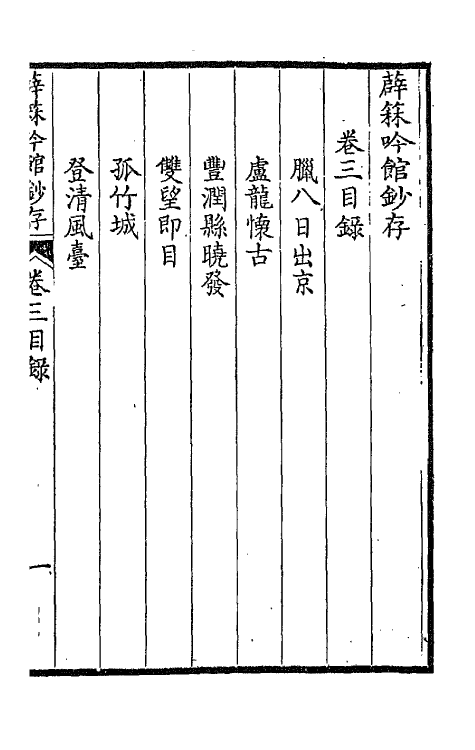 薜箖吟館鈔存
卷三目錄
臘八日出京
盧龍懷古
豐潤縣曉發
雙望即目
孤竹城
登清風臺
薜箖吟館鈔存
卷三目錄
一